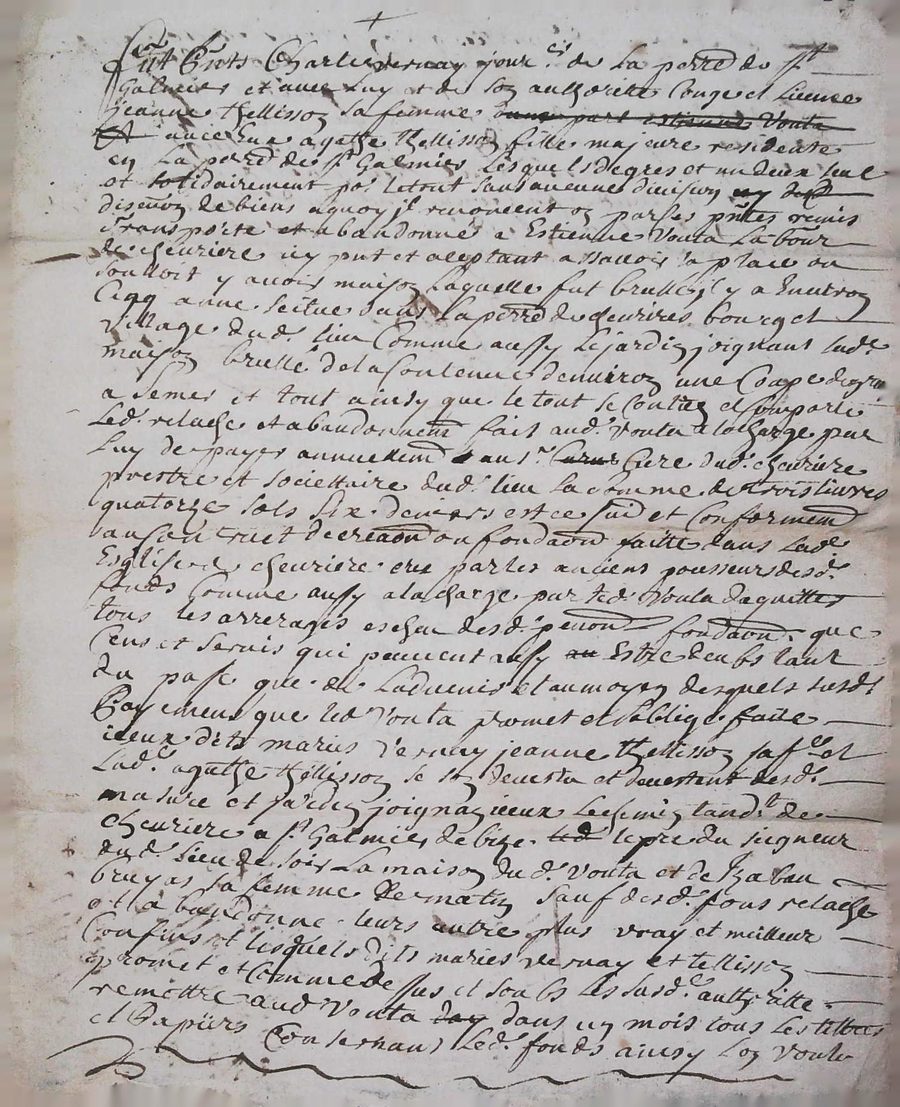 Furent pnts Charles vernay jour.er de La parr.e de St
Galmier et avec Luy et de son authorité Conge et Licence
jeanne thellisson sa femme d'une part estienne Vouta
et avec Eux agathe thellisson fille majeure residente
en La parr.e de St Galmier Lesquels de gres et un deux seul
et solidairement por Le tout sans aucune division ny de
discution de biens a quoy jl renoncent on par ses pntes remis
Transporte et abandonné a Estienne Vouta Labour
de cheuriere icy pnt et aceptant a scavoir la place ou
souloit y avoir maison Laquelle fut brullée il y a Environ
Cinq anne scitue dans La parr.e de cheurires bourg et
Village dud. lieu Comme aussy Le jardin joignant lad.e
maison brullé de la Contenue d'environ une Coupe de grain
a semer et tout ainsy que le tout se Contien et Comporte
Led. relache et abandonnemt fait aud. Vouta a la charge par
Luy de payer annuellemt au sr Curé dud. cheuriere
prestre et societtaire dud. lieu La somme de trois livres
quatorze sols six deniers est ce suiv et Conformemt
au Contract de creaon ou fondaon faitte dans Lad.e
Esglise de cheuriere par les anciens pousseurs desd.
fonds Comme aussy a la charge par led Vouta daquitter
tous les arrerages escheu desd. pention fondaon que
Cens et servis qui peuvent aussy Estre deubs tant
du passe que de Ladvenir et au moyen desquels susd.
Payemens que led Vouta promet et soblige faire
iceux dits maries Vernay jeanne thellisson sa fe et
Lad.e agathe thellisson se son devestu et devestent desd.
masure et jardin joignan iceux Le chemin tandt de
cheuriere a St Galmier de bize le pre du seigneur
dud. Lieu de soir La maison dud. Vouta et de
bruyas sa femme de matin sauf desd. fons relache
et abandonne leurs autre plus vray et meilleur
Confins et lesquels dits maries vernay et tellisson
promet et Comme dessus et soubs Les susd.e authoritte
remettre aud Vouta dans un mois tous Les tiltres
et Papiers Consernant Led. fonds ainsy Lon Voulu